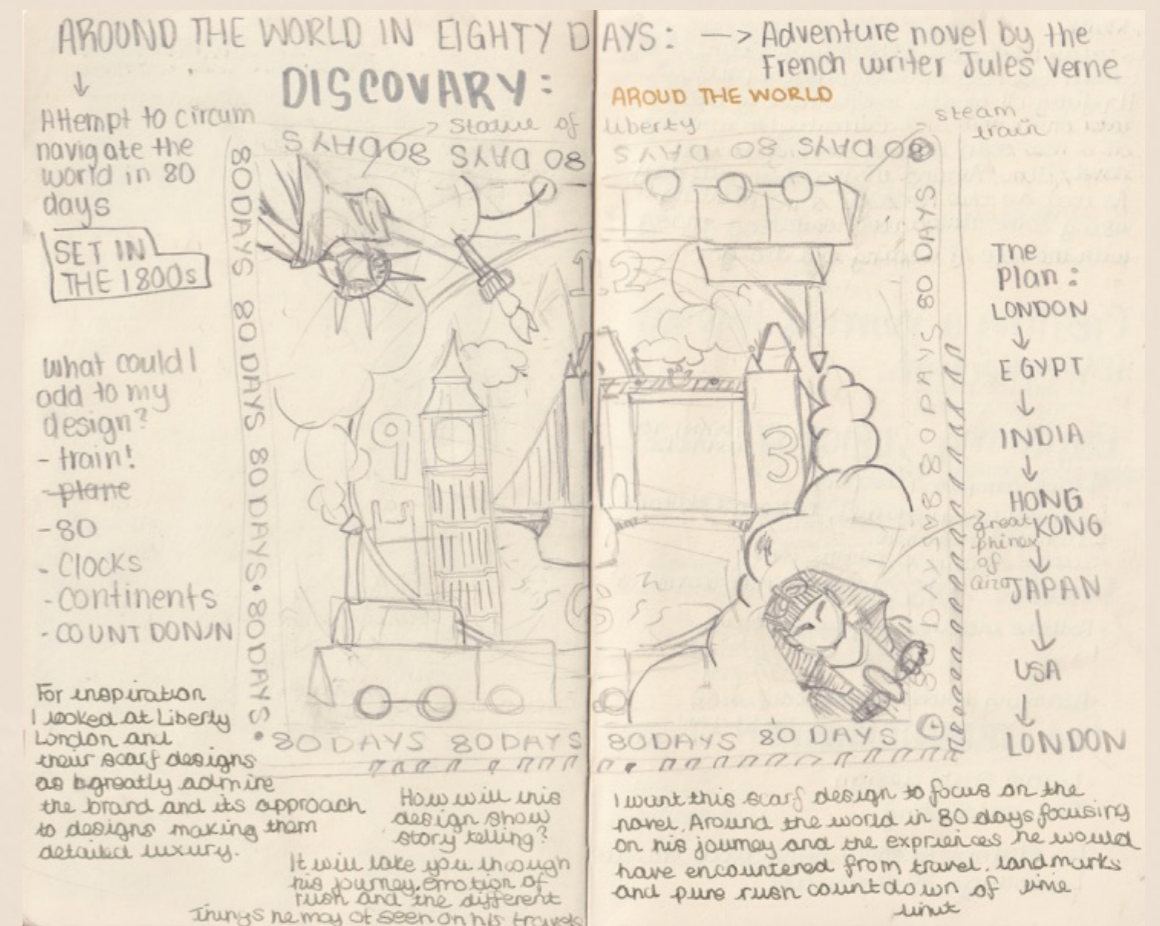 AROUND THE WORLD IN EIGHTY DAYS:
-> Adventure novel by the
French writer Jules Verne
DISCOVARY:
AROUD THE WORLD
Attempt to circum
navigate the
world in 80
days
SET IN
THE 1800s
What could I
add to my
design?
- train!
- plane
- 80
- Clocks
- Continents
- COUNT DOWN
For inspiration
I looked at Liberty
London and
their scarf designs
as greatly admire
the brand and its approach
to designs making them
detailed luxury.
Statue of
liberty
steam
train
80 DAYS 80 DAYS
80 DAYS 80 DAYS
80 DAYS 80 DAYS 80 DAYS 80 DAYS
12
9
3
6
80 DAYS 80 DAYS
80 DAYS 80 DAYS
80 DAYS 80 DAYS 80 DAYS 80 DAYS
The
Plan:
LONDON
EGYPT
INDIA
HONG
KONG
JAPAN
USA
LONDON
great
of
How will this
design show
story telling?
It will take you through
his journey, emotion of
rush and the different
Things he may of seen on his travels
I want this scarf design to focus on the
novel. Around the world in 80 days focusing
on his journey and the expriences he would
have encountered from travel, landmarks
and pure rush countdown of time
limit